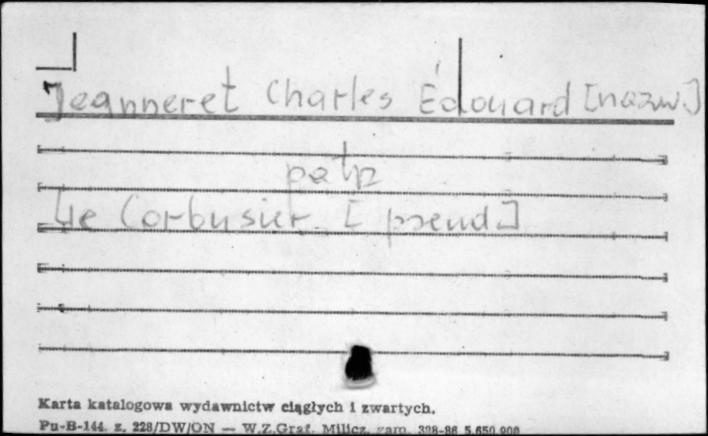 Jeanneret Charles Édouard [nazw.]
patrz
Le Corbusier. [pseud]
Karta katalogowa wydawnictw ciągłych i zwartych.
Pu-B-144. z. 228/DW/ON — W.Z.Graf. Milicz, zam. 398-86 5.650.000